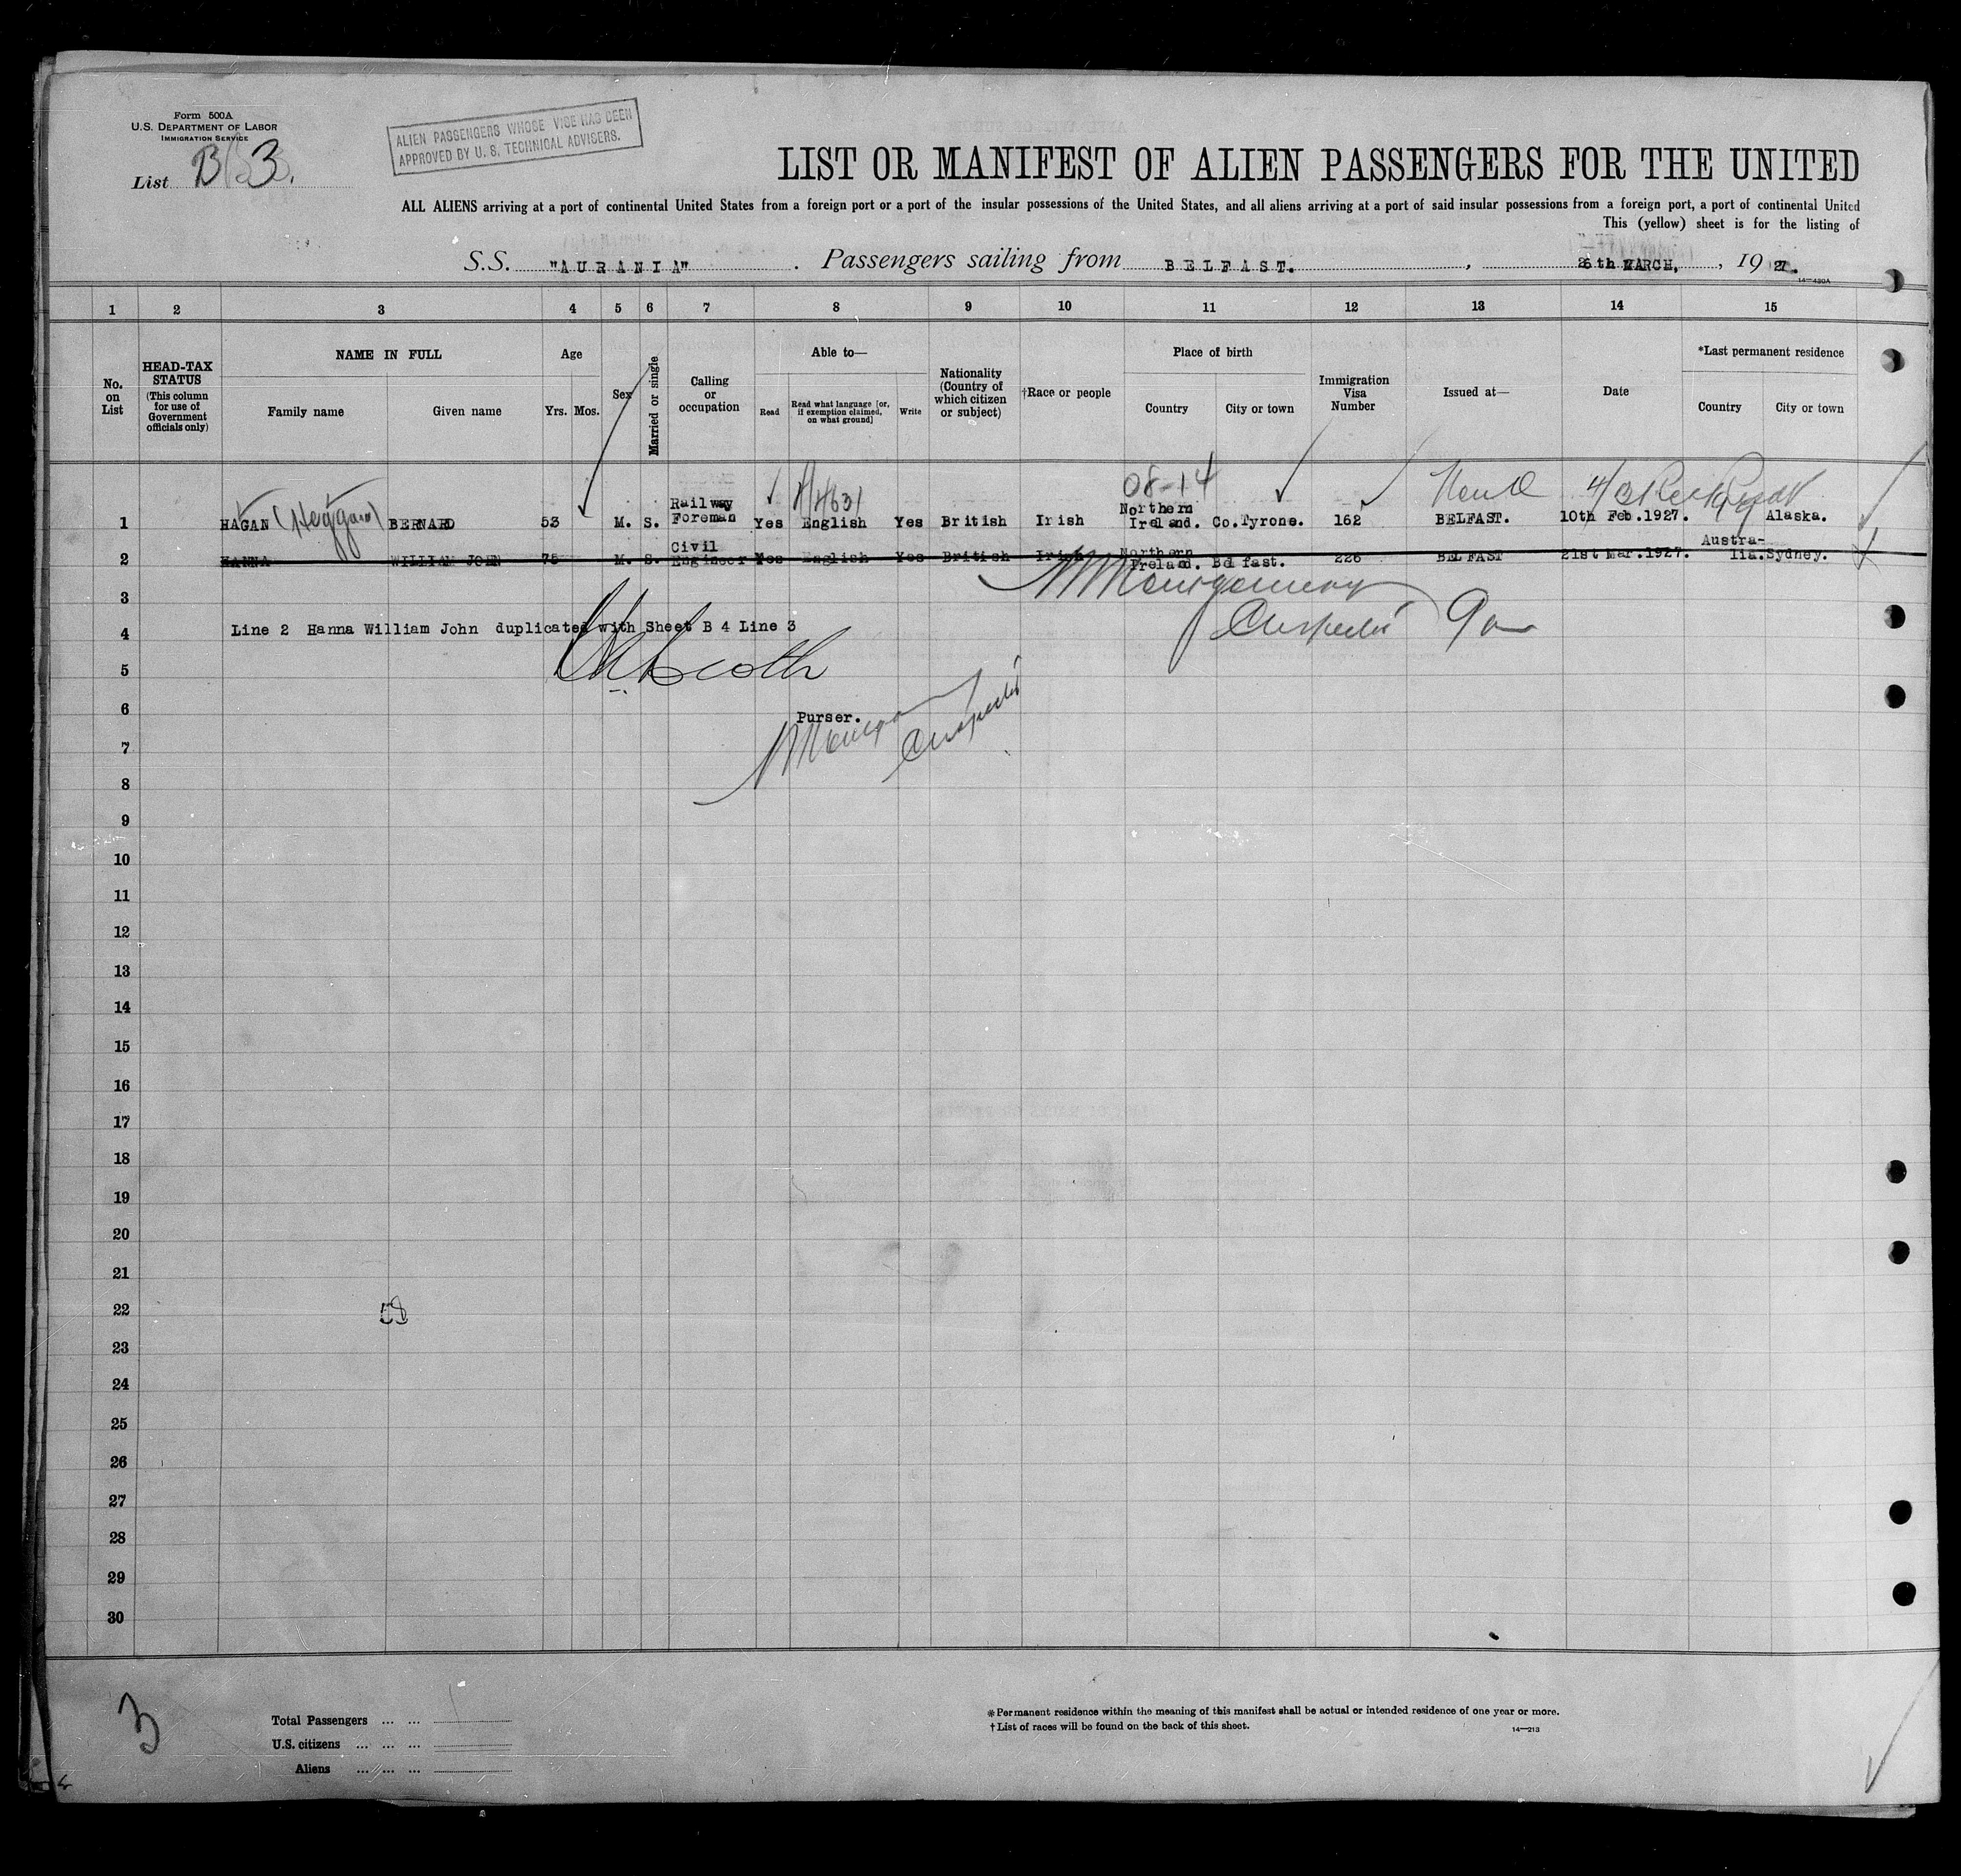 Form 500A
U.S. DEPARTMENT OF LABOR
IMMIGRATION SERVICE
List B 3.
ALIEN PASSENGERS WHOSE VICE HAS BEEN
APPROVED BY U. S. TECHNICAL ADVISERS.
LIST OR MANIFEST OF ALIEN PASSENGERS FOR THE UNITED
ALL ALIENS arriving at a port of continental United States from a foreign port or a port of the insular possessions of the United States, and all aliens arriving at a port of said insular possessions from a foreign port, a port of continental United
This (yellow) sheet is for the listing of
S.S. "AURANIA". Passengers sailing from BELFAST. , 26th MARCH, , 1927.
14—430A
1 2 3 4 5 6 7 8 9 10 11 12 13 14 15
No. on List
HEAD-TAX STATUS (This column for use of Government officials only)
NAME IN FULL
Family name Given name
Age
Yrs. Mos.
Sex
Married or single
Calling or occupation
Able to—
Read
Read what language [or, if exemption claimed, on what ground]
Write
Nationality (Country of which citizen or subject)
†Race or people
Place of birth
Country City or town
Immigration Visa Number
Issued at—
Date
*Last permanent residence
Country City or town
08-14
1 HAGAN (Heggan) BERNARD 53 M. S. Railway Foreman Yes English Yes British Irish Northern Ireland. Co.Tyrone. 162 BELFAST. 10th Feb.1927. Alaska.
2 HANNA WILLIAM JOHN 75 M. S. Civil Engineer Yes English Yes British Irish Northern Ireland. Belfast. 226 BELFAST 21st Mar.1927. Australia. Sydney.
3
Montgomery
4 Line 2 Hanna William John duplicated with Sheet B 4 Line 3
5
6 Purser.
7
8
9
10
11
12
13
14
15
16
17
18
19
20
21
22 58
23
24
25
26
27
28
29
30
3
Total Passengers ... ...
U.S. citizens ... ... ...
Aliens ... ... ...
*Permanent residence within the meaning of this manifest shall be actual or intended residence of one year or more.
†List of races will be found on the back of this sheet.
14—213